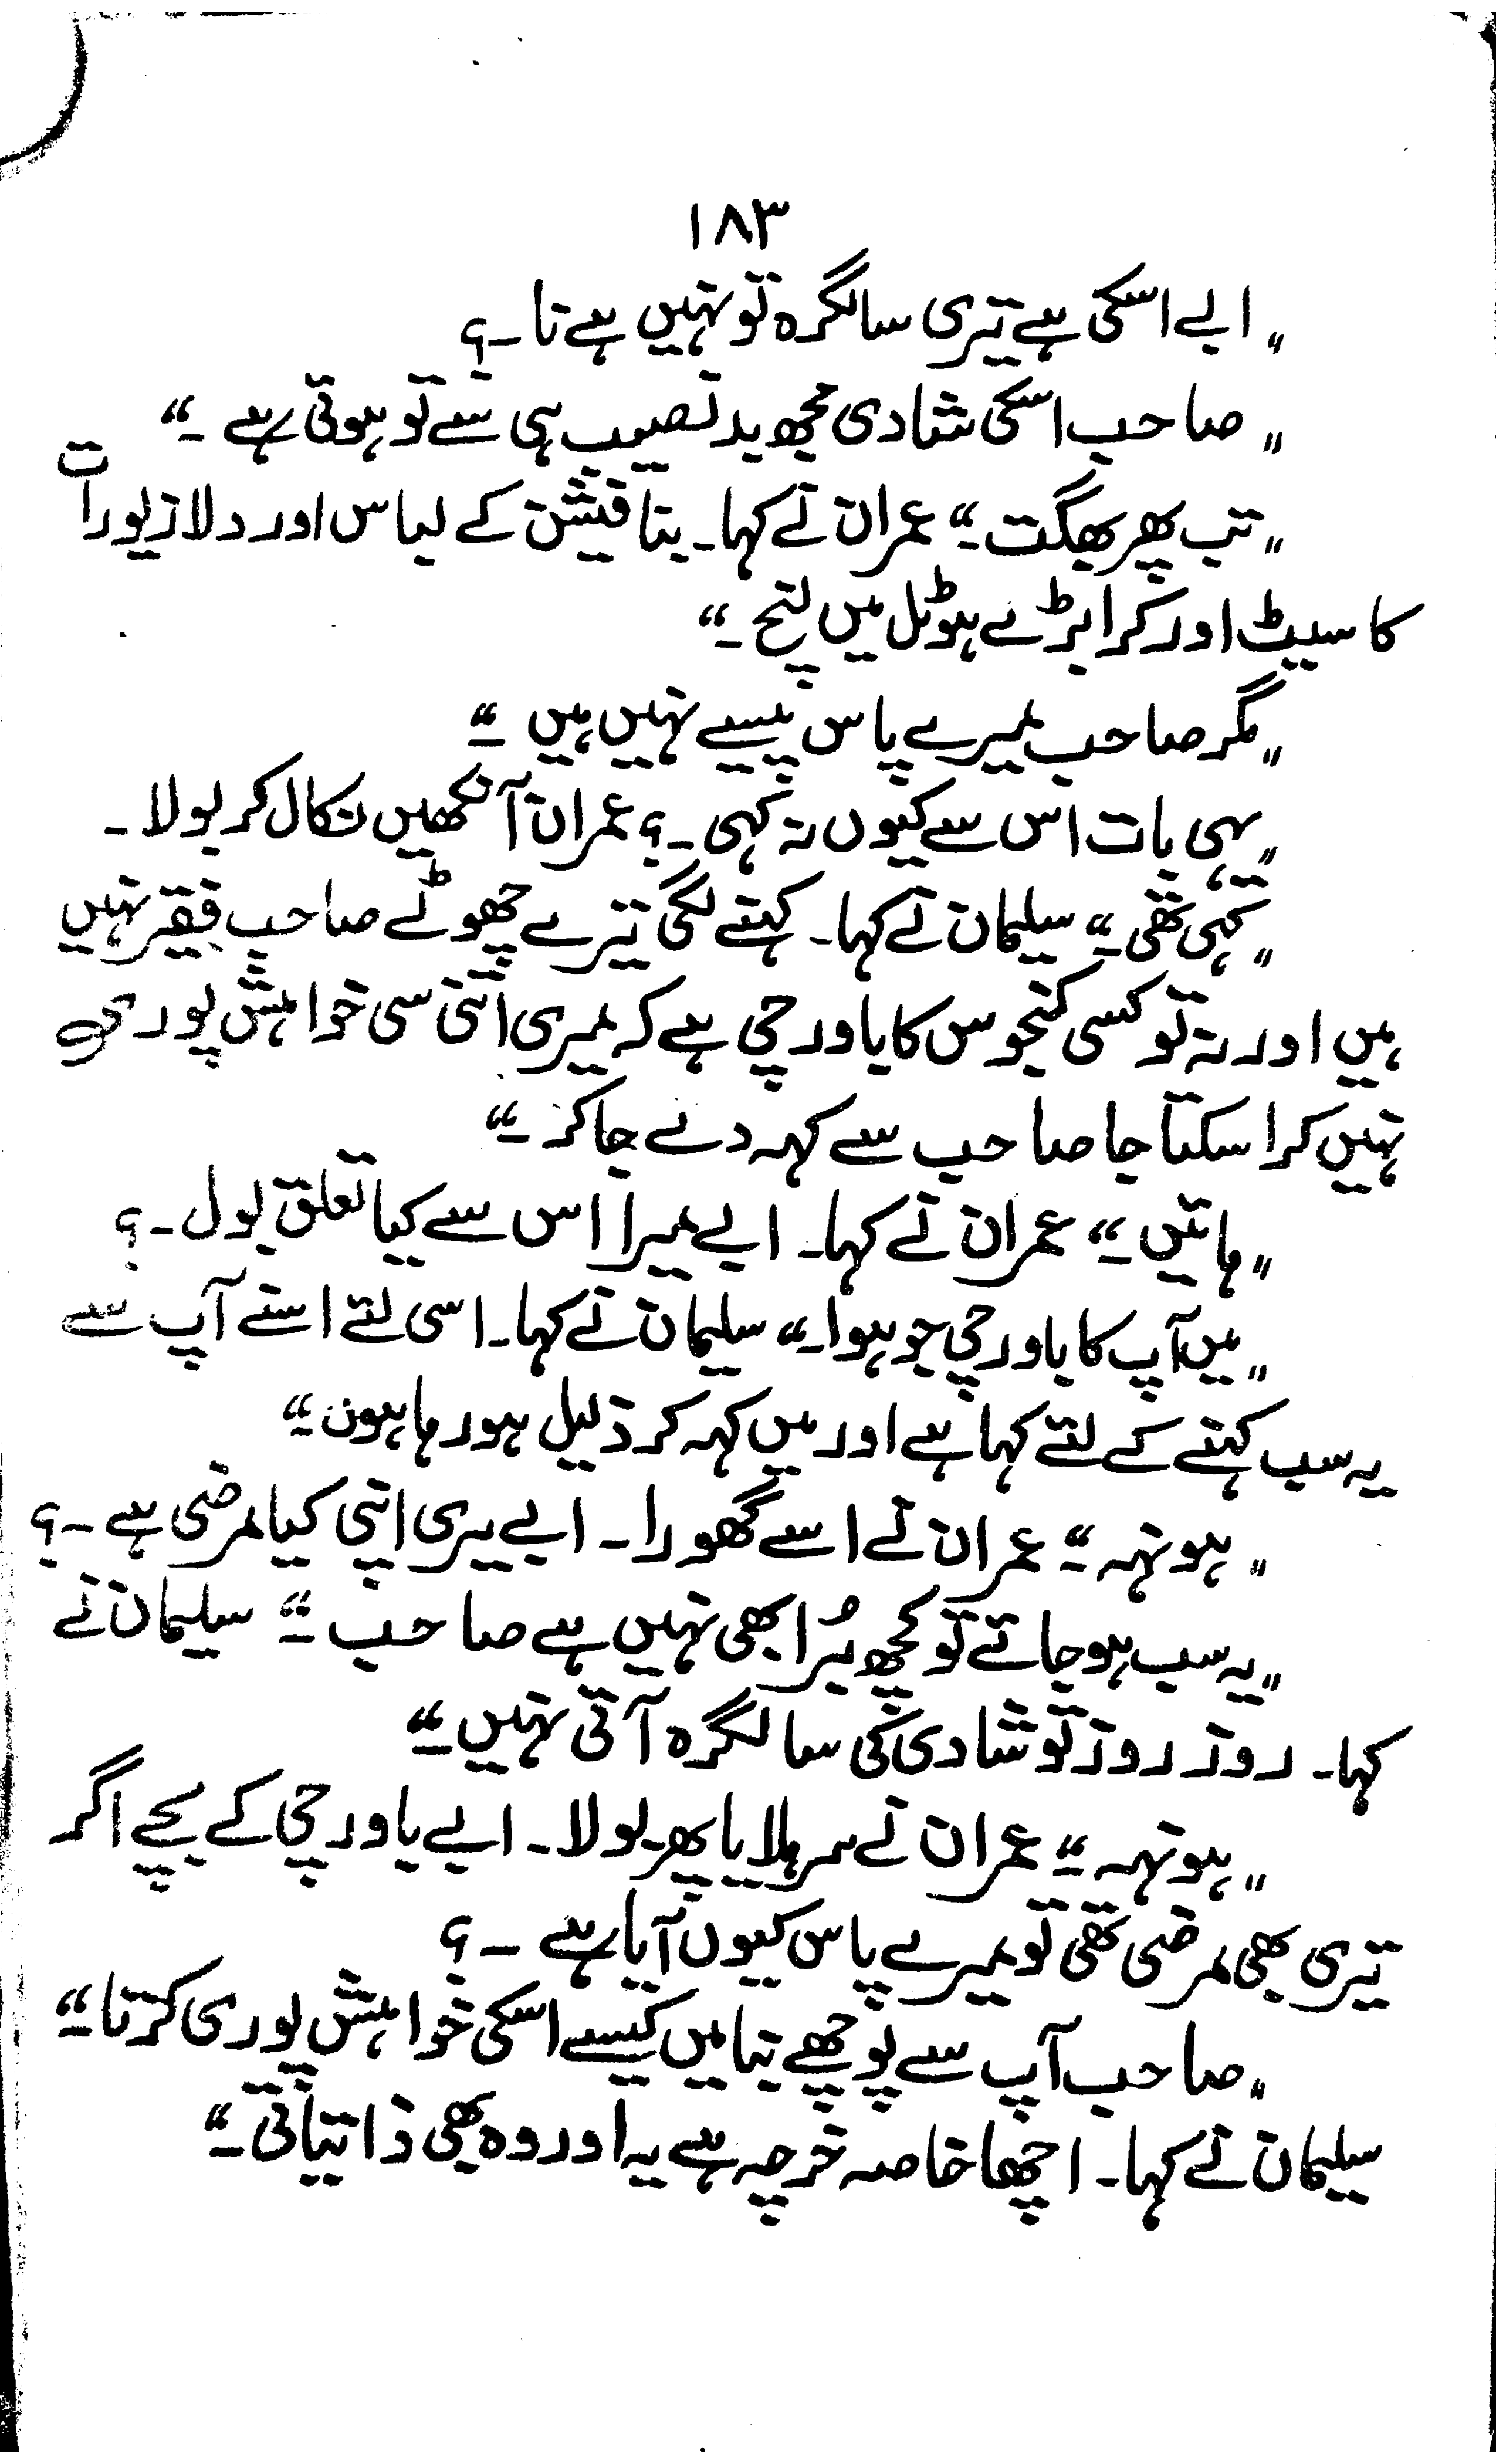 ۱۸۳
"ابے اسکی ہے تیری سالگرہ تو نہیں ہے نا۔؟
"صاحب اسکی شادی مجھ بدنصیب ہی سے تو ہوئی ہے۔"
"تب پھر بھگت۔" عمران نے کہا۔ بنا فیشن کے لباس اور دلا زیورات
کا سیٹ اور کرا بڑے ہوٹل میں لنچ۔"
"مگر صاحب میرے پاس پیسے نہیں ہیں۔"
"یہی بات اس سے کیوں نہ کہی۔؟ عمران آنکھیں نکال کر بولا۔
"کہی تھی۔" سلیمان نے کہا۔ کہنے لگی تیرے چھوٹے صاحب فقیر نہیں
ہیں اور نہ تو کسی کنجوس کا باورچی ہے کہ میری اتنی سی خواہش پوری
نہیں کرا سکتا جا صاحب سے کہہ دے جا کر۔"
"ہائیں۔" عمران نے کہا۔ ابے میرا اس سے کیا تعلق بول۔؟
"میں آپ کا باورچی جو ہوا۔" سلیمان نے کہا۔ اسی لئے اسنے آپ سے
یہ سب کہنے کے لئے کہا ہے اور میں کہہ کر ذلیل ہو رہا ہوں۔"
"ہونہہ۔" عمران نے اسے گھورا۔ ابے یری اپنی کیا مرضی ہے۔؟
"یہ سب ہو جائے تو کچھ بُرا بھی نہیں ہے صاحب۔" سلیمان نے
کہا۔ روز روز تو شادی کی سالگرہ آتی نہیں۔"
"ہونہہ۔" عمران نے سر ہلایا پھر بولا۔ ابے باورچی کے بچے اگر
تیری بھی مرضی تھی تو میرے پاس کیوں آیا ہے۔؟
"صاحب آپ سے پوچھے بنا میں کیسے اسکی خواہش پوری کرتا۔"
سلیمان نے کہا۔ اچھا خاصہ خرچہ ہے یہ اور وہ بھی ذاتیاتی۔"